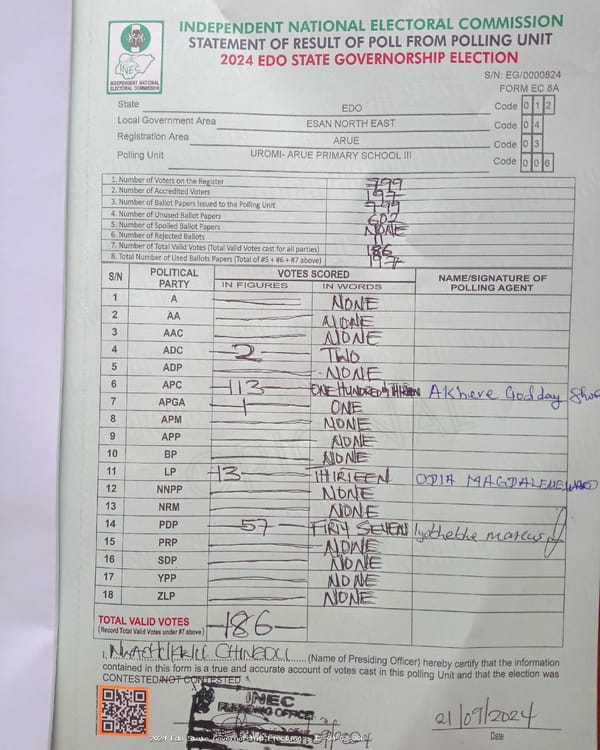 INDEPENDENT NATIONAL ELECTORAL COMMISSION
STATEMENT OF RESULT OF POLL FROM POLLING UNIT
2024 EDO STATE GOVERNORSHIP ELECTION
INEC
INDEPENDENT NATIONAL
ELECTORAL COMMISSION
S/N: EG/0000824
FORM EC 8A
State EDO Code 0 1 2
Local Government Area ESAN NORTH EAST Code 0 4
Registration Area ARUE Code 0 3
Polling Unit UROMI- ARUE PRIMARY SCHOOL III Code 0 0 6
1. Number of Voters on the Register 799
2. Number of Accredited Voters 197
3. Number of Ballot Papers Issued to the Polling Unit 799
4. Number of Unused Ballot Papers 602
5. Number of Spoiled Ballot Papers NONE
6. Number of Rejected Ballots 11
7. Number of Total Valid Votes (Total Valid Votes cast for all parties) 186
8. Total Number of Used Ballots Papers (Total of #5 + #6 + #7 above) 197
S/N POLITICAL PARTY VOTES SCORED NAME/SIGNATURE OF POLLING AGENT
IN FIGURES IN WORDS
1 A NONE
2 AA NONE
3 AAC NONE
4 ADC 2 TWO
5 ADP NONE
6 APC 113 ONE HUNDRED & Akhere Godday
7 APGA 1 ONE
8 APM NONE
9 APP NONE
10 BP NONE
11 LP 13 THIRTEEN ODIA MAGDALENE
12 NNPP NONE
13 NRM NONE
14 PDP 57 SEVEN marcus
15 PRP NONE
16 SDP NONE
17 YPP NONE
18 ZLP NONE
TOTAL VALID VOTES 186
(Record Total Valid Votes under #7 above)
I, CHINEDU (Name of Presiding Officer) hereby certify that the information
contained in this form is a true and accurate account of votes cast in this polling Unit and that the election was
CONTESTED/NOT CONTESTED
INEC
PRESIDING OFFICER
21/09/2024
Date
2024 Edo State Governorship Election